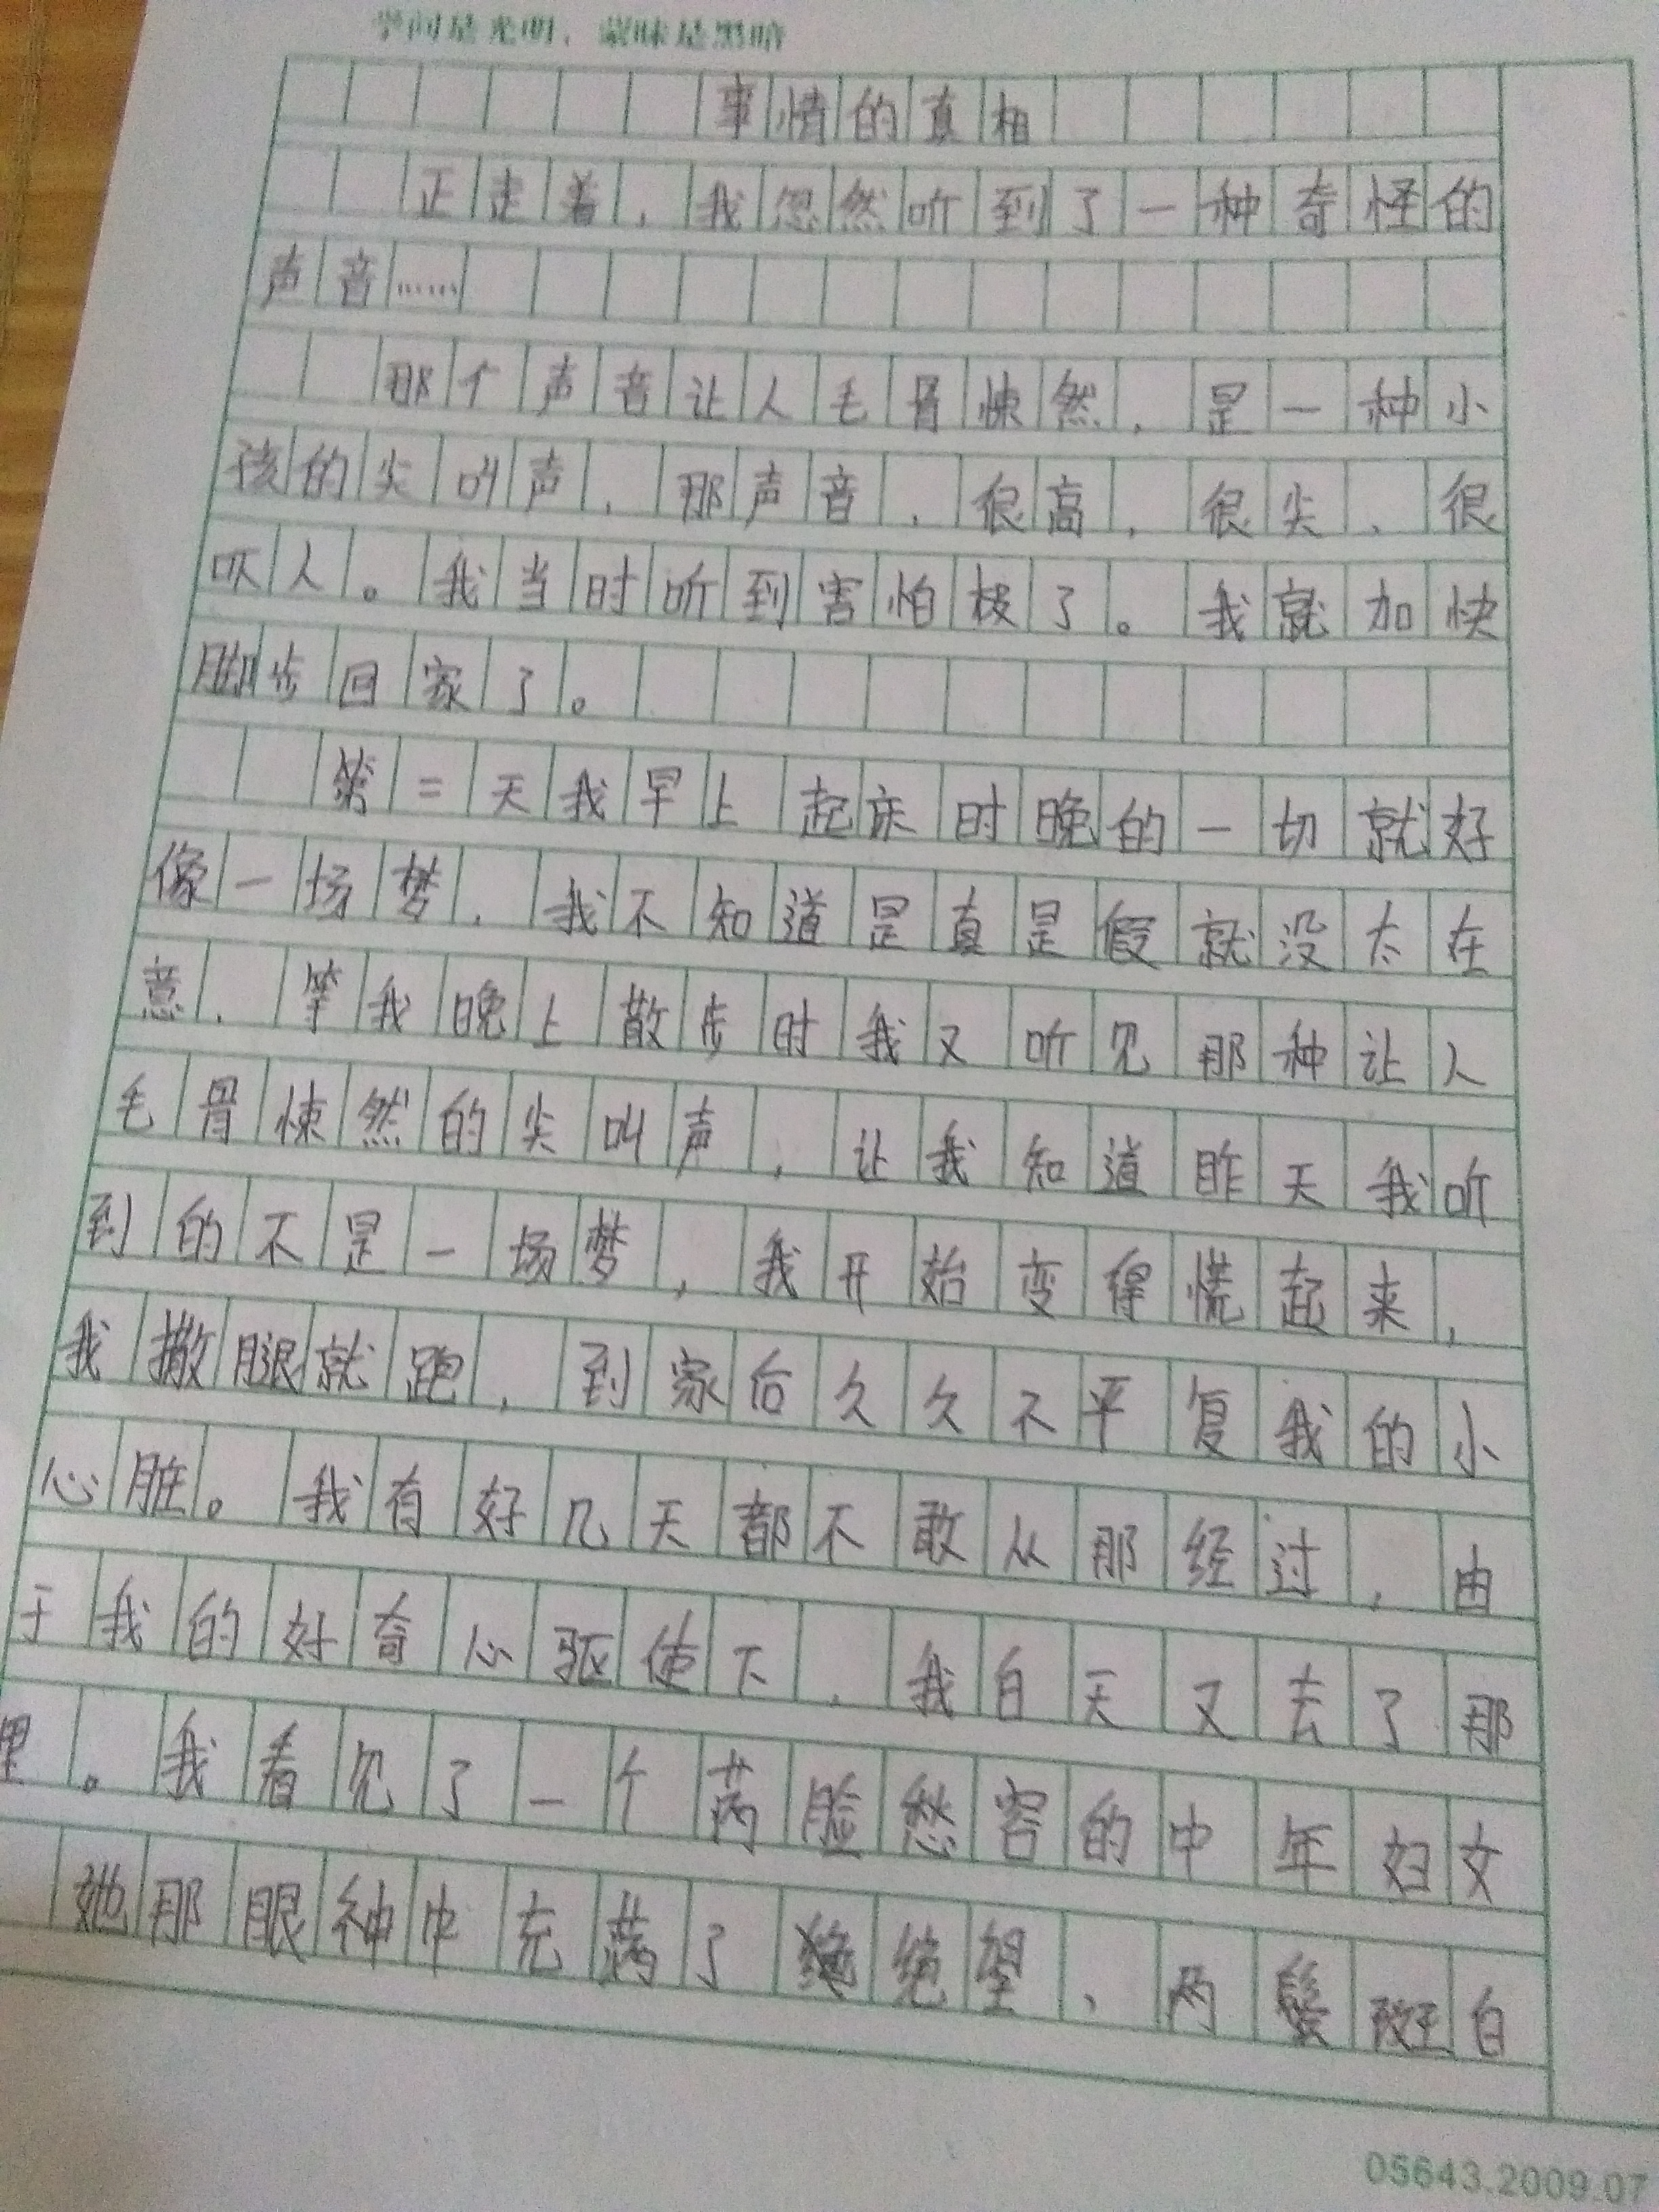 学问是光明，蒙昧是黑暗
事情的真相
正走着，我忽然听到了一种奇怪的
声音……
那个声音让人毛骨悚然，是一种小
孩的尖叫声，那声音，很高，很尖、很
吓人。我当时听到害怕极了。我就加快
脚步回家了。
第二天我早上起床时晚的一切就好
像一场梦，我不知道是真是假就没太在
意，等我晚上散步时我又听见那种让人
毛骨悚然的尖叫声，让我知道昨天我听
到的不是一场梦，我开始变得慌起来，
我撒腿就跑，到家后久久不平复我的小
心脏。我有好几天都不敢从那经过，由
于我的好奇心驱使下，我白天又去了那
里。我看见了一个满脸愁容的中年妇女
她那眼神中充满了绝望、两鬓斑白
05643.2009.07